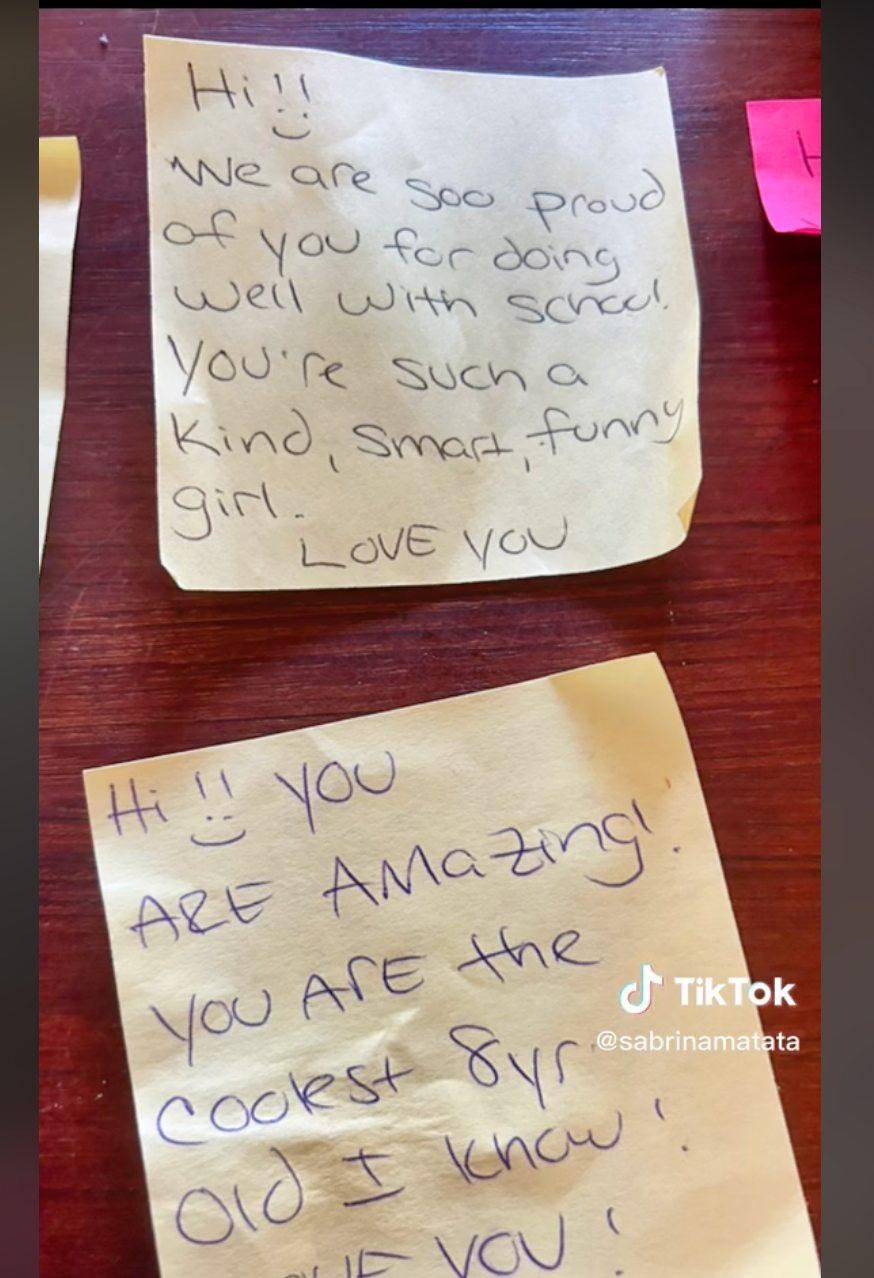 Hi!!
We are soo proud
of you for doing
well with school.
You're such a
kind, smart, funny
girl.
LOVE YOU
H
Hi!! YOU
ARE AMazing!
YOU ArE the
coolest 8yr
Old I know!
YOU!
TikTok
@sabrinamatata